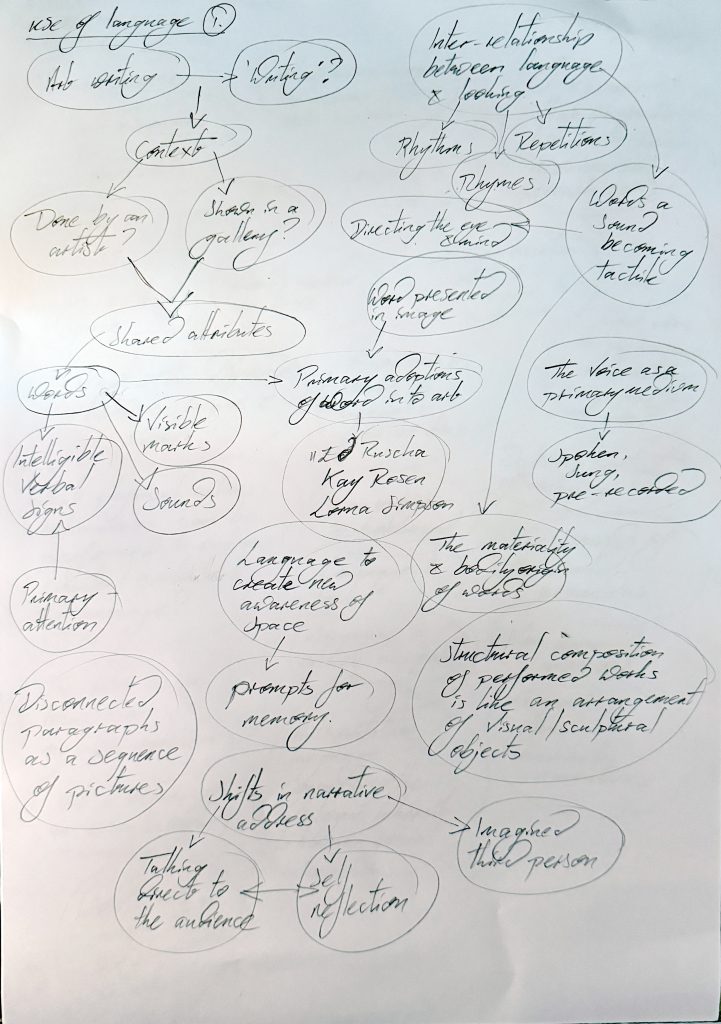 Use of language 1.
Art writing
'Writing'?
Context
Done by an
artist?
Shown in a
gallery?
Shared attributes
Words
Visible
marks
Sounds
Intelligible
Verbal
Signs
Primary
attention
Inter-relationship
between language
& looking
Rhythms
Repetitions
Rhymes
Directing the eye
& mind
Words a
Sound
becoming
tactile
Word presented
in image
Primary adoptions
of word into art
Ruscha
Kay Rosen
Lorna Simpson
The Voice as a
primary medium
Spoken,
Sung,
pre-recorded
The materiality
& bodily origin
of words
Language to
create new
awareness of
Space
prompts for
memory.
Structural composition
of performed works
is like an arrangement
of visual/sculptural
objects
Disconnected
paragraphs
as a sequence
of pictures
Shifts in narrative
address
Talking
direct to
the audience
Self
reflection
Imagined
third person